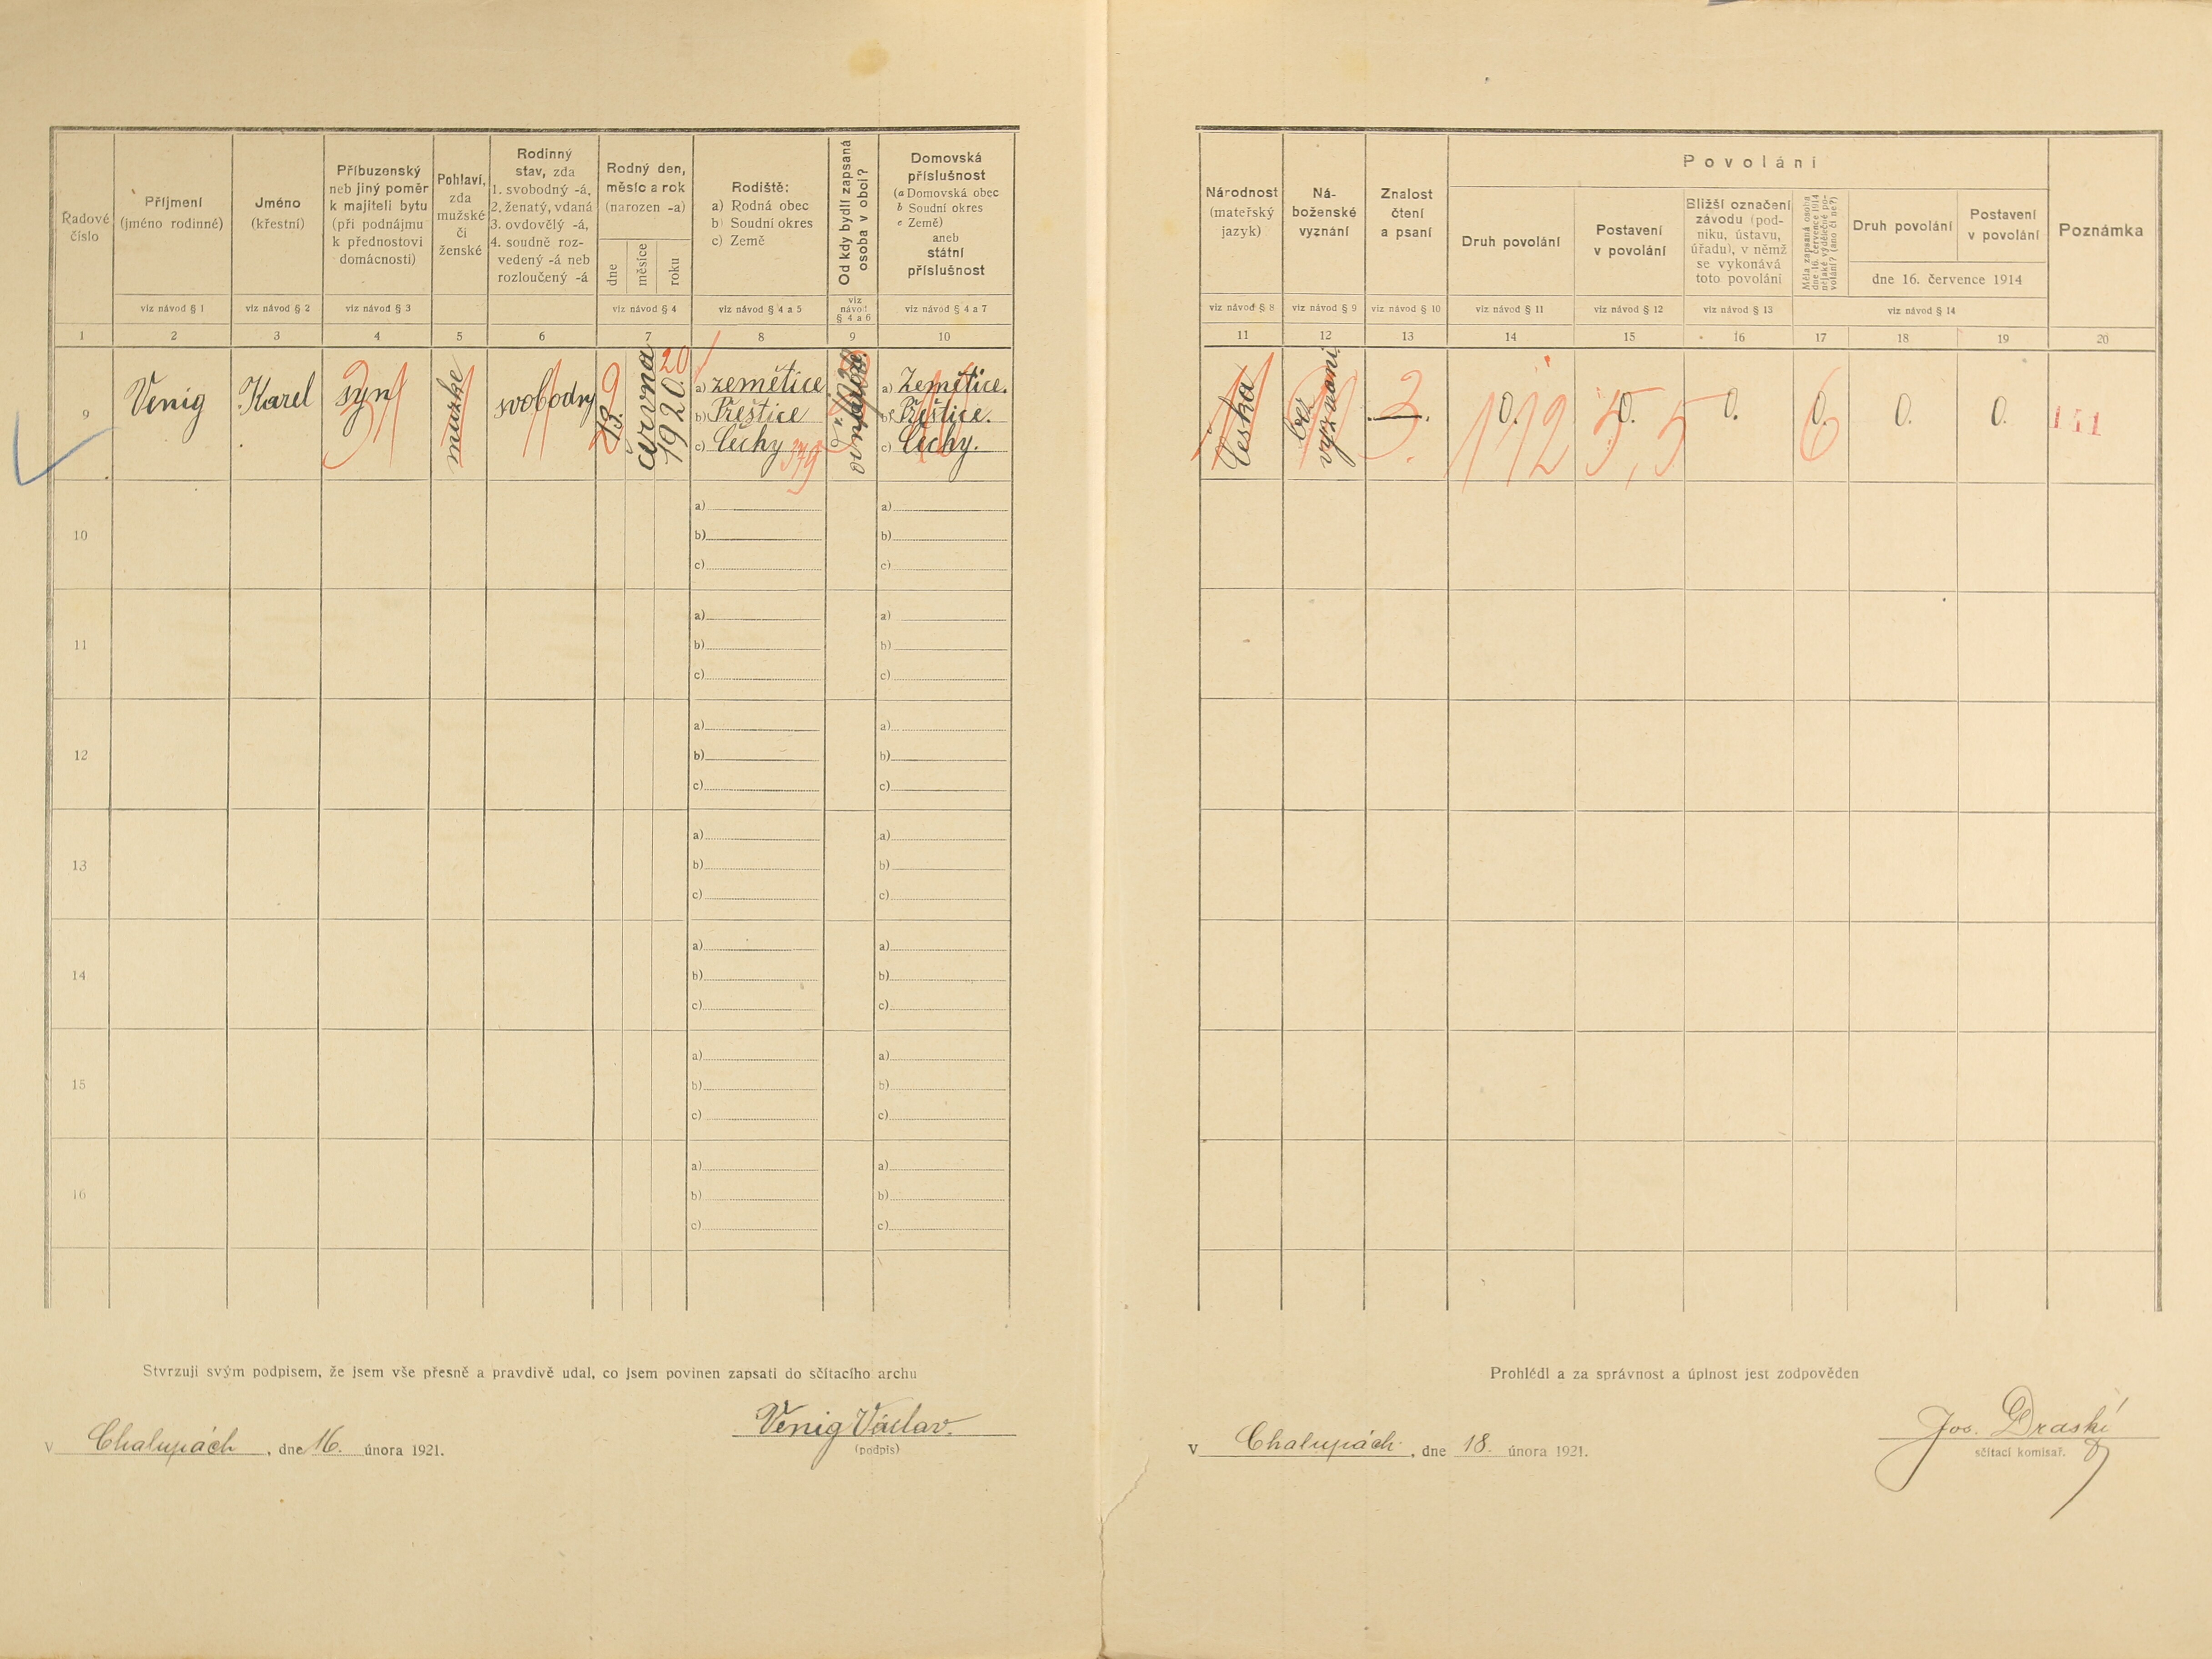 Řadové
číslo
Příjmení
(jméno rodinné)
viz návod § 1
Jméno
(křestní)
viz návod § 2
Příbuzenský
neb jiný poměr
k majiteli bytu
(při podnájmu
k přednostovi
domácnosti)
viz návod § 3
Pohlaví,
zda
mužské
či
ženské
Rodinný
stav, zda
1. svobodný -á,
2. ženatý, vdaná
3. ovdovělý -á,
4. soudně roz-
vedený -á neb
rozloučený -á
Rodný den,
měsíc a rok
(narozen -a)
dne
měsíce
roku
viz návod § 4
Rodiště:
a) Rodná obec
b) Soudní okres
c) Země
viz návod § 4 a 5
Od kdy bydlí zapsaná
osoba v obci?
viz
návod
§ 4 a 6
Domovská
příslušnost
(a Domovská obec
b Soudní okres
c Země)
aneb
státní
příslušnost
viz návod § 4 a 7
1 2 3 4 5 6 7 8 9 10
9
Venig
Karel
syn
31
mužske
1
svobodny
1
13.
června
1920.
9
20
a) zemětice
b) Přeštice
c) Čechy
379
a) Zemětice.
b) Přeštice.
c) Čechy.
10
a)
b)
c)
a)
b)
c)
11
a)
b)
c)
a)
b)
c)
12
a)
b)
c)
a)
b)
c)
13
a)
b)
c)
a)
b)
c)
14
a)
b)
c)
a)
b)
c)
15
a)
b)
c)
a)
b)
c)
16
a)
b)
c)
a)
b)
c)
Stvrzuji svým podpisem, že jsem vše přesně a pravdivě udal, co jsem povinen zapsati do sčítacího archu
V Chalupách, dne 16. února 1921.
Venig Václav.
(podpis)
Národnost
(mateřský
jazyk)
viz návod § 8
Ná-
boženské
vyznání
viz návod § 9
Znalost
čtení
a psaní
viz návod § 10
Povolání
Druh povolání
viz návod § 11
Postavení
v povolání
viz návod § 12
Bližší označení
závodu (pod-
niku, ústavu,
úřadu), v němž
se vykonává
toto povolání
viz návod § 13
Měla zapsaná osoba
dne 16. července 1914
nějaké výdělečné po-
volání? (ano či ne?)
Druh povolání
Postavení
v povolání
dne 16. července 1914
viz návod § 14
Poznámka
11 12 13 14 15 16 17 18 19 20
Česka
bez
vyznani
3
0.
112
0.
5,5
0.
0.
6
0.
0.
151
Prohlédl a za správnost a úplnost jest zodpověden
V Chalupách, dne 18. února 1921.
Jos. Draský
sčítací komisař.